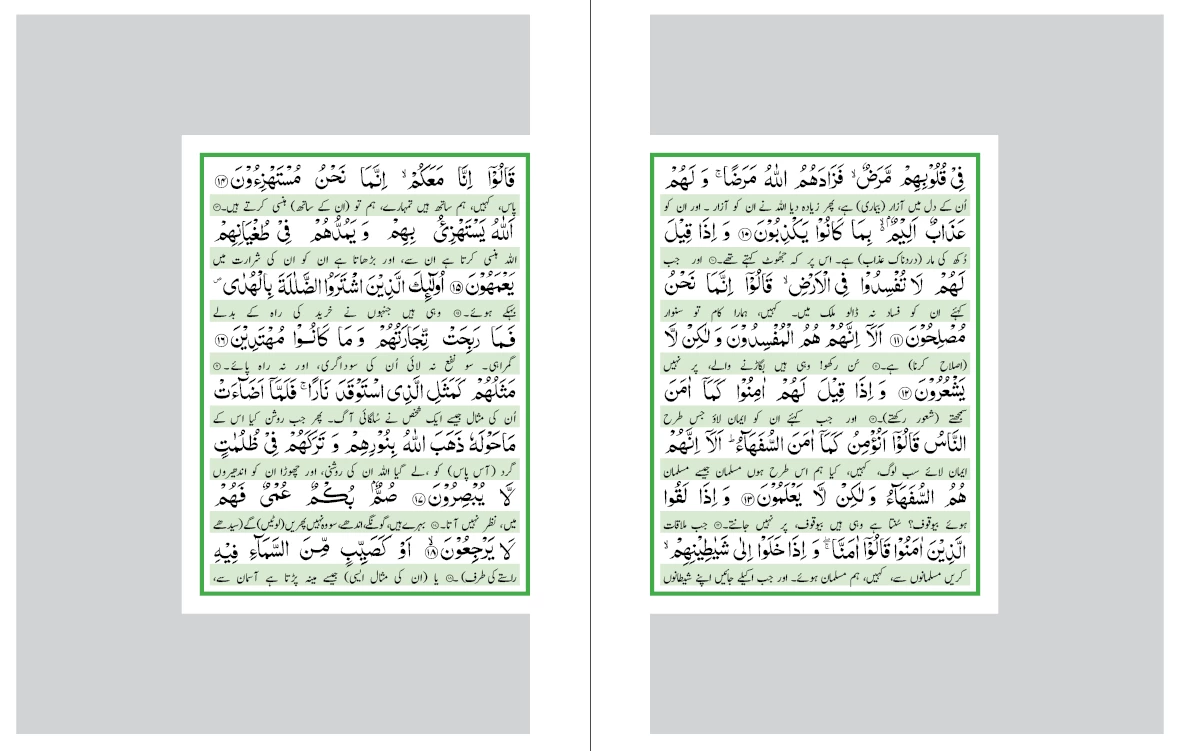 فِىۡ قُلُوۡبِهِمۡ مَّرَضٌ ۙ فَزَادَهُمُ اللّٰهُ مَرَضًا ۚ وَ لَهُمۡ
اُن کے دل میں آزار (بیماری) ہے، پھر زیادہ دیا اللہ نے ان کو آزار ۔ اور ان کو
عَذَابٌ اَلِيۡمٌۢ ۙ بِمَا كَانُوۡا يَكۡذِبُوۡنَ ۝۱۰ وَ اِذَا قِيۡلَ
دُکھ کی مار (دردناک عذاب) ہے۔ اس پر کہ جھوٹ کہتے تھے۔۝ اور جب
لَهُمۡ لَا تُفۡسِدُوۡا فِى الۡاَرۡضِ ۙ قَالُوۡٓا اِنَّمَا نَحۡنُ
کہئے ان کو فساد نہ ڈالو ملک میں۔ کہیں، ہمارا کام تو سنوار
مُصۡلِحُوۡنَ ۝۱۱ اَلَاۤ اِنَّهُمۡ هُمُ الۡمُفۡسِدُوۡنَ وَ لٰكِنۡ لَّا
(اصلاح کرنا) ہے۔۝ سُن رکھو! وہی ہیں بگاڑنے والے، پر نہیں
يَشۡعُرُوۡنَ ۝۱۲ وَ اِذَا قِيۡلَ لَهُمۡ اٰمِنُوۡا كَمَاۤ اٰمَنَ
سمجھتے (شعور رکھتے)۔۝ اور جب کہئے ان کو ایمان لاؤ جس طرح
النَّاسُ قَالُوۡٓا اَنُؤۡمِنُ كَمَاۤ اٰمَنَ السُّفَهَآءُ ؕ اَلَاۤ اِنَّهُمۡ
ایمان لائے سب لوگ، کہیں، کیا ہم اس طرح ہوں مسلمان جیسے مسلمان
هُمُ السُّفَهَآءُ وَ لٰكِنۡ لَّا يَعۡلَمُوۡنَ ۝۱۳ وَ اِذَا لَقُوا
ہوئے بیوقوف؟ سُنتا ہے وہی ہیں بیوقوف، پر نہیں جانتے۔۝ جب ملاقات
الَّذِيۡنَ اٰمَنُوۡا قَالُوۡٓا اٰمَنَّا ۖۚ وَ اِذَا خَلَوۡا اِلٰى شَيٰطِيۡنِهِمۡ ۙ
کریں مسلمانوں سے، کہیں، ہم مسلمان ہوئے۔ اور جب اکیلے جائیں اپنے شیطانوں
قَالُوۡٓا اِنَّا مَعَكُمۡ ۙ اِنَّمَا نَحۡنُ مُسۡتَهۡزِءُوۡنَ ۝۱۴
پاس، کہیں، ہم ساتھ ہیں تمہارے، ہم تو (ان کے ساتھ) ہنسی کرتے ہیں۔۝
اَللّٰهُ يَسۡتَهۡزِئُ بِهِمۡ وَ يَمُدُّهُمۡ فِىۡ طُغۡيَانِهِمۡ
اللہ ہنسی کرتا ہے ان سے، اور بڑھاتا ہے ان کو ان کی شرارت میں
يَعۡمَهُوۡنَ ۝۱۵ اُولٰٓئِكَ الَّذِيۡنَ اشۡتَرَوُا الضَّلٰلَةَ بِالۡهُدٰى ۖ
بہکے ہوئے۔۝ وہی ہیں جنہوں نے خرید کی راہ کے بدلے
فَمَا رَبِحَتۡ تِّجَارَتُهُمۡ وَ مَا كَانُوۡا مُهۡتَدِيۡنَ ۝۱۶
گمراہی۔ سو نفع نہ لائی اُن کی سوداگری، اور نہ راہ پائے۔۝
مَثَلُهُمۡ كَمَثَلِ الَّذِى اسۡتَوۡقَدَ نَارًا ۚ فَلَمَّآ اَضَآءَتۡ
اُن کی مثال جیسے ایک شخص نے سُلگائی آگ۔ پھر جب روشن کیا اس کے
مَا حَوۡلَهٗ ذَهَبَ اللّٰهُ بِنُوۡرِهِمۡ وَ تَرَكَهُمۡ فِىۡ ظُلُمٰتٍ
گرد (آس پاس) کو ،لے گیا اللہ ان کی روشنی، اور چھوڑا ان کو اندھیروں
لَّا يُبۡصِرُوۡنَ ۝۱۷ صُمٌّۢ بُكۡمٌ عُمۡىٌ فَهُمۡ
میں، نظر نہیں آتا۔۝ بہرے ہیں، گونگے، اندھے، سو وہ نہیں پھریں (لوٹیں) گے (سیدھے
لَا يَرۡجِعُوۡنَ ۝۱۸ ۙ اَوۡ كَصَيِّبٍ مِّنَ السَّمَآءِ فِيۡهِ
راستے کی طرف) ۔۝ یا (ان کی مثال ایسی) جیسے مینہ پڑتا ہے آسمان سے،